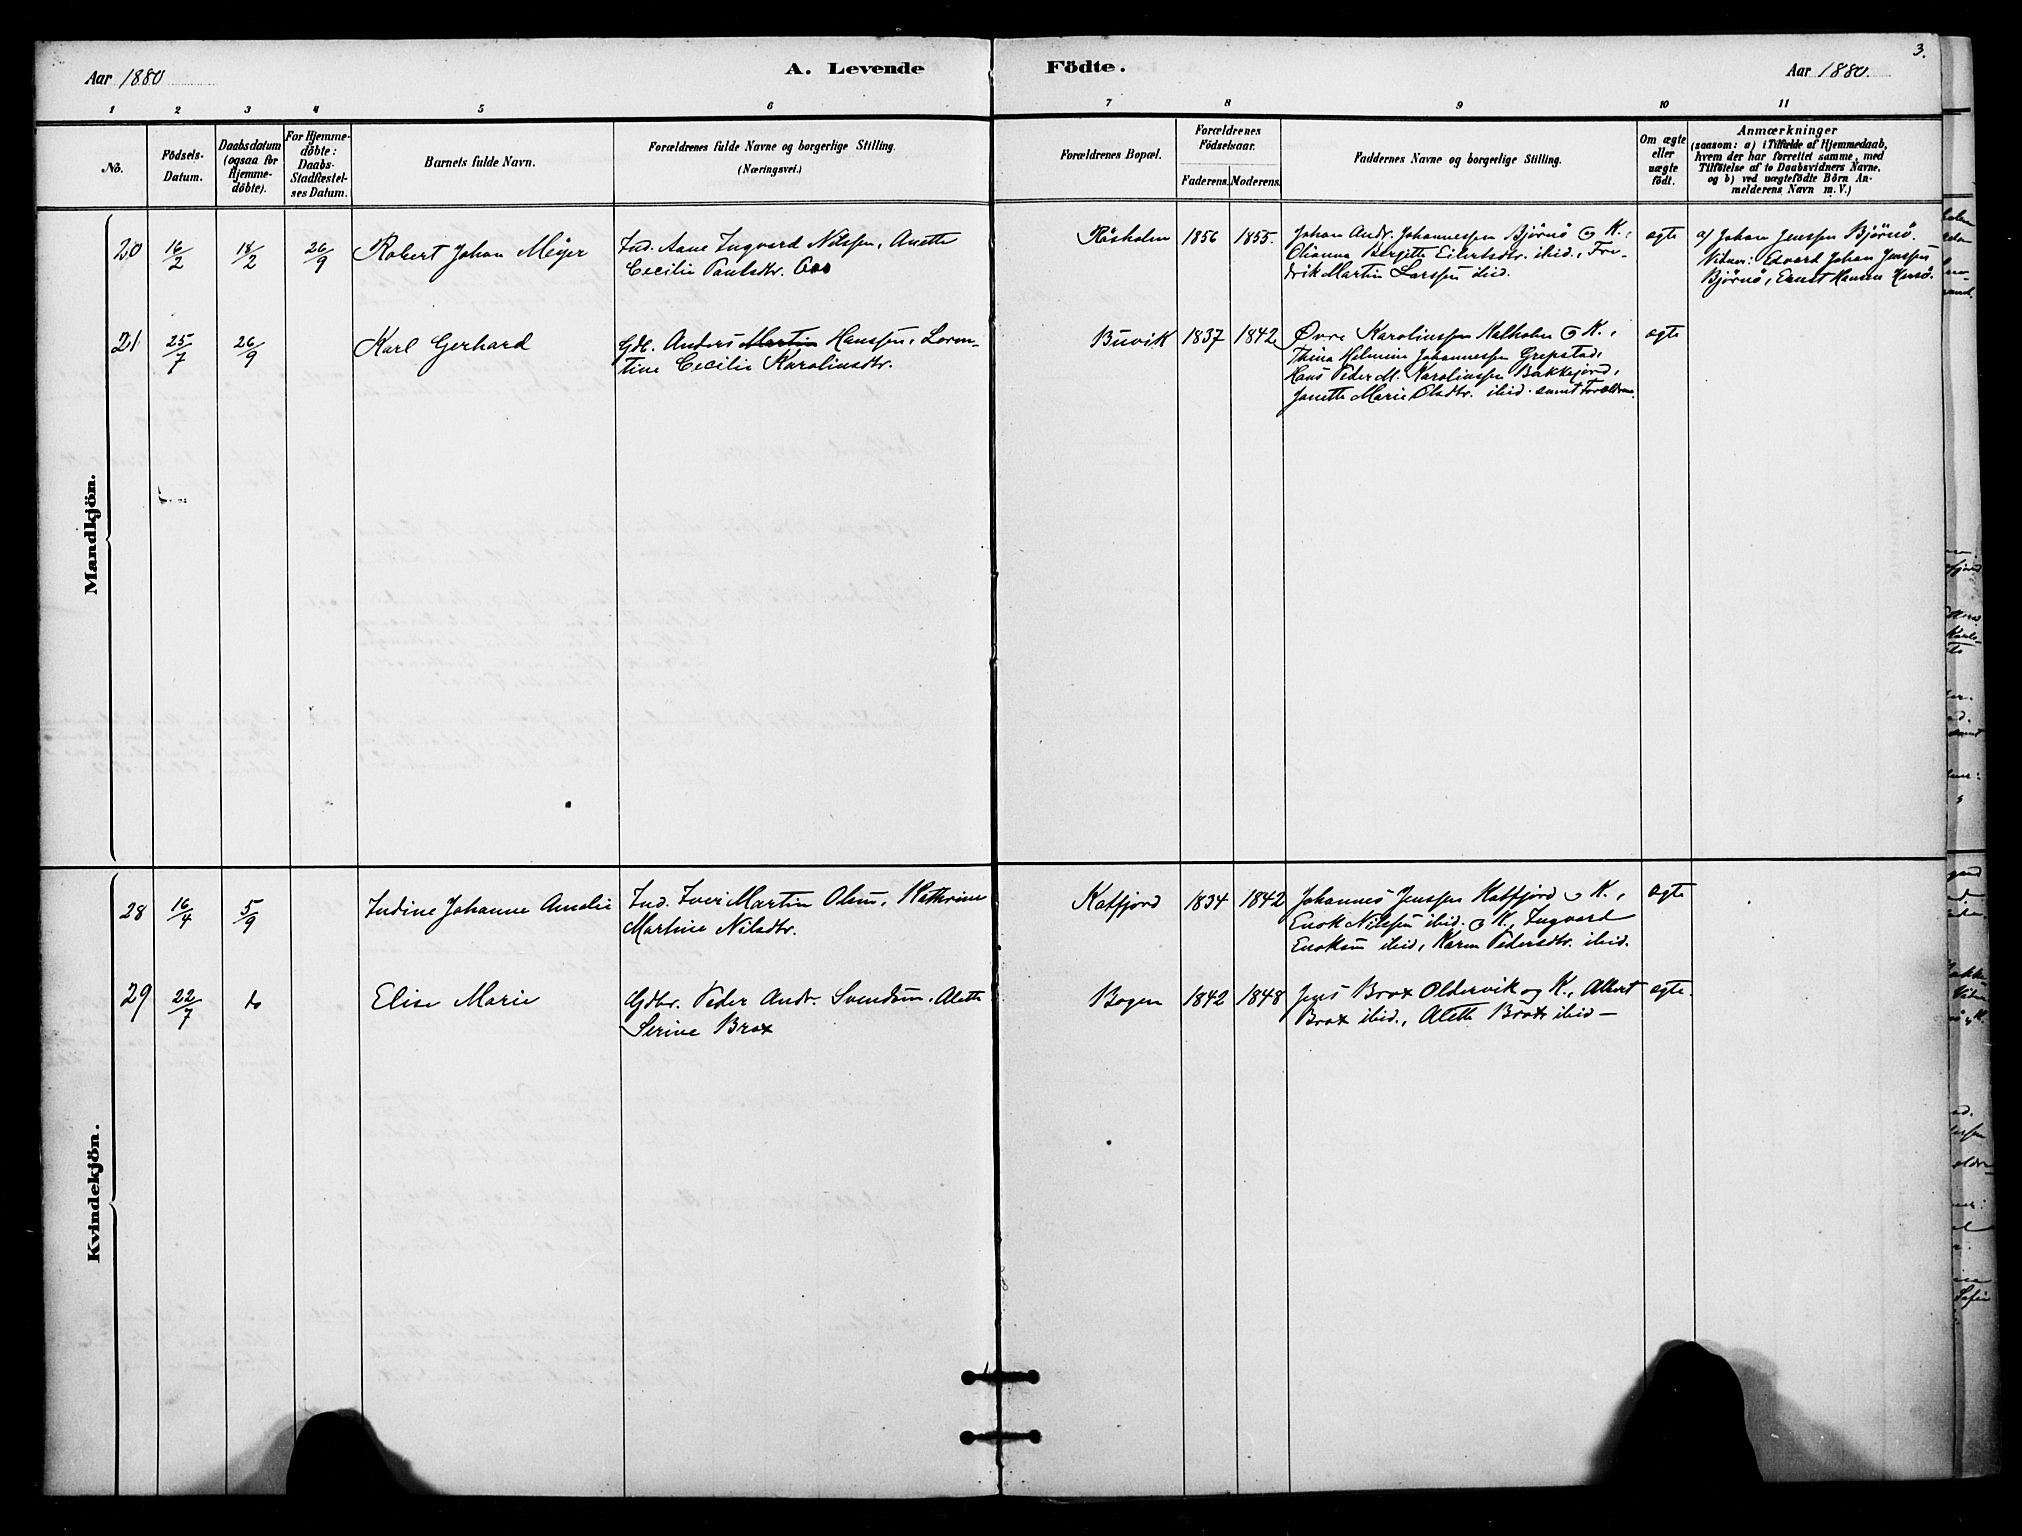 Aar 1880
A. Levende
Födte.
Aar 1880.
3.
1 2 3 4 5 6 7 8 9 10 11
No.
Födsels-
Datum.
Daabsdatum
(ogsaa for
Hjemme-
döbte).
For Hjemme-
döbte:
Daabs-
Stadfæstel-
ses Datum.
Barnets fulde Navn.
Forældrenes fulde Navne og borgerlige Stilling.
(Næringsvei.)
Forældrenes Bopæl.
Forældrenes
Födselsaar.
Faderens. Moderens.
Faddernes Navne og borgerlige Stilling.
Om ægte
eller
uægte
födt.
Anmærkninger
(saasom: a) i Tilfælde af Hjemmedaab,
hvem der har forrettet samme, med
Tilföielse af to Daabsvidners Navne,
og b) ved uægtefödte Börn An-
melderens Navn m. V.)
Mandkjön.
20 16/2 18/2 26/9 Robert Johan Meyer
Ind. Aane Ingvard Nilssen, Anette
Cecilie Paulsdtr.
Røsholm 1856 1855.
Johan Andr. Johannessen Bjørnø o K.,
Olianna Bergitte Eilertsdtr. ibid., Fre-
drik Martin Larssen ibid.
ægte
af Johan Jenssen Bjørnø.
Vidner: Edvard Johan Jenssen
Bjørnø, Ernst Hansen Hersø.
21 25/7 26/9 Karl Gerhard
Gdl. Anders Martin Hanssen, Loren-
tine Cecilie Karolinsdtr.
Buvik 1837 1842
Øvre Karolinssen Kalholm o K.,
Thina Halmine Johannessen Grepstad,
Hans Peder M. Karolinssen Bakkejord,
Janette Marie Olsdtr. ibid. samt Forældrene.
ægte
Kvindekjön.
28 16/4 5/9 Indine Johanne Amalie
Ind. Iver Martin Olsen, Kathrine
Martine Nilsdtr.
Katfjord 1834 1842
Johannes Jenssen Katfjord o K.,
Enok Nilssen ibid. o K., Ingvard
Enoksen ibid, Karen Pedersdtr. ibid.
ægte
29 22/7 do Elise Marie
Gdbr. Peder Andr. Svendsen, Alette
Serine Brox
Bogen 1842 1848
Jens Brox Oldervik og K., Albert
Brox ibid., Alette Brox ibid —
ægte.